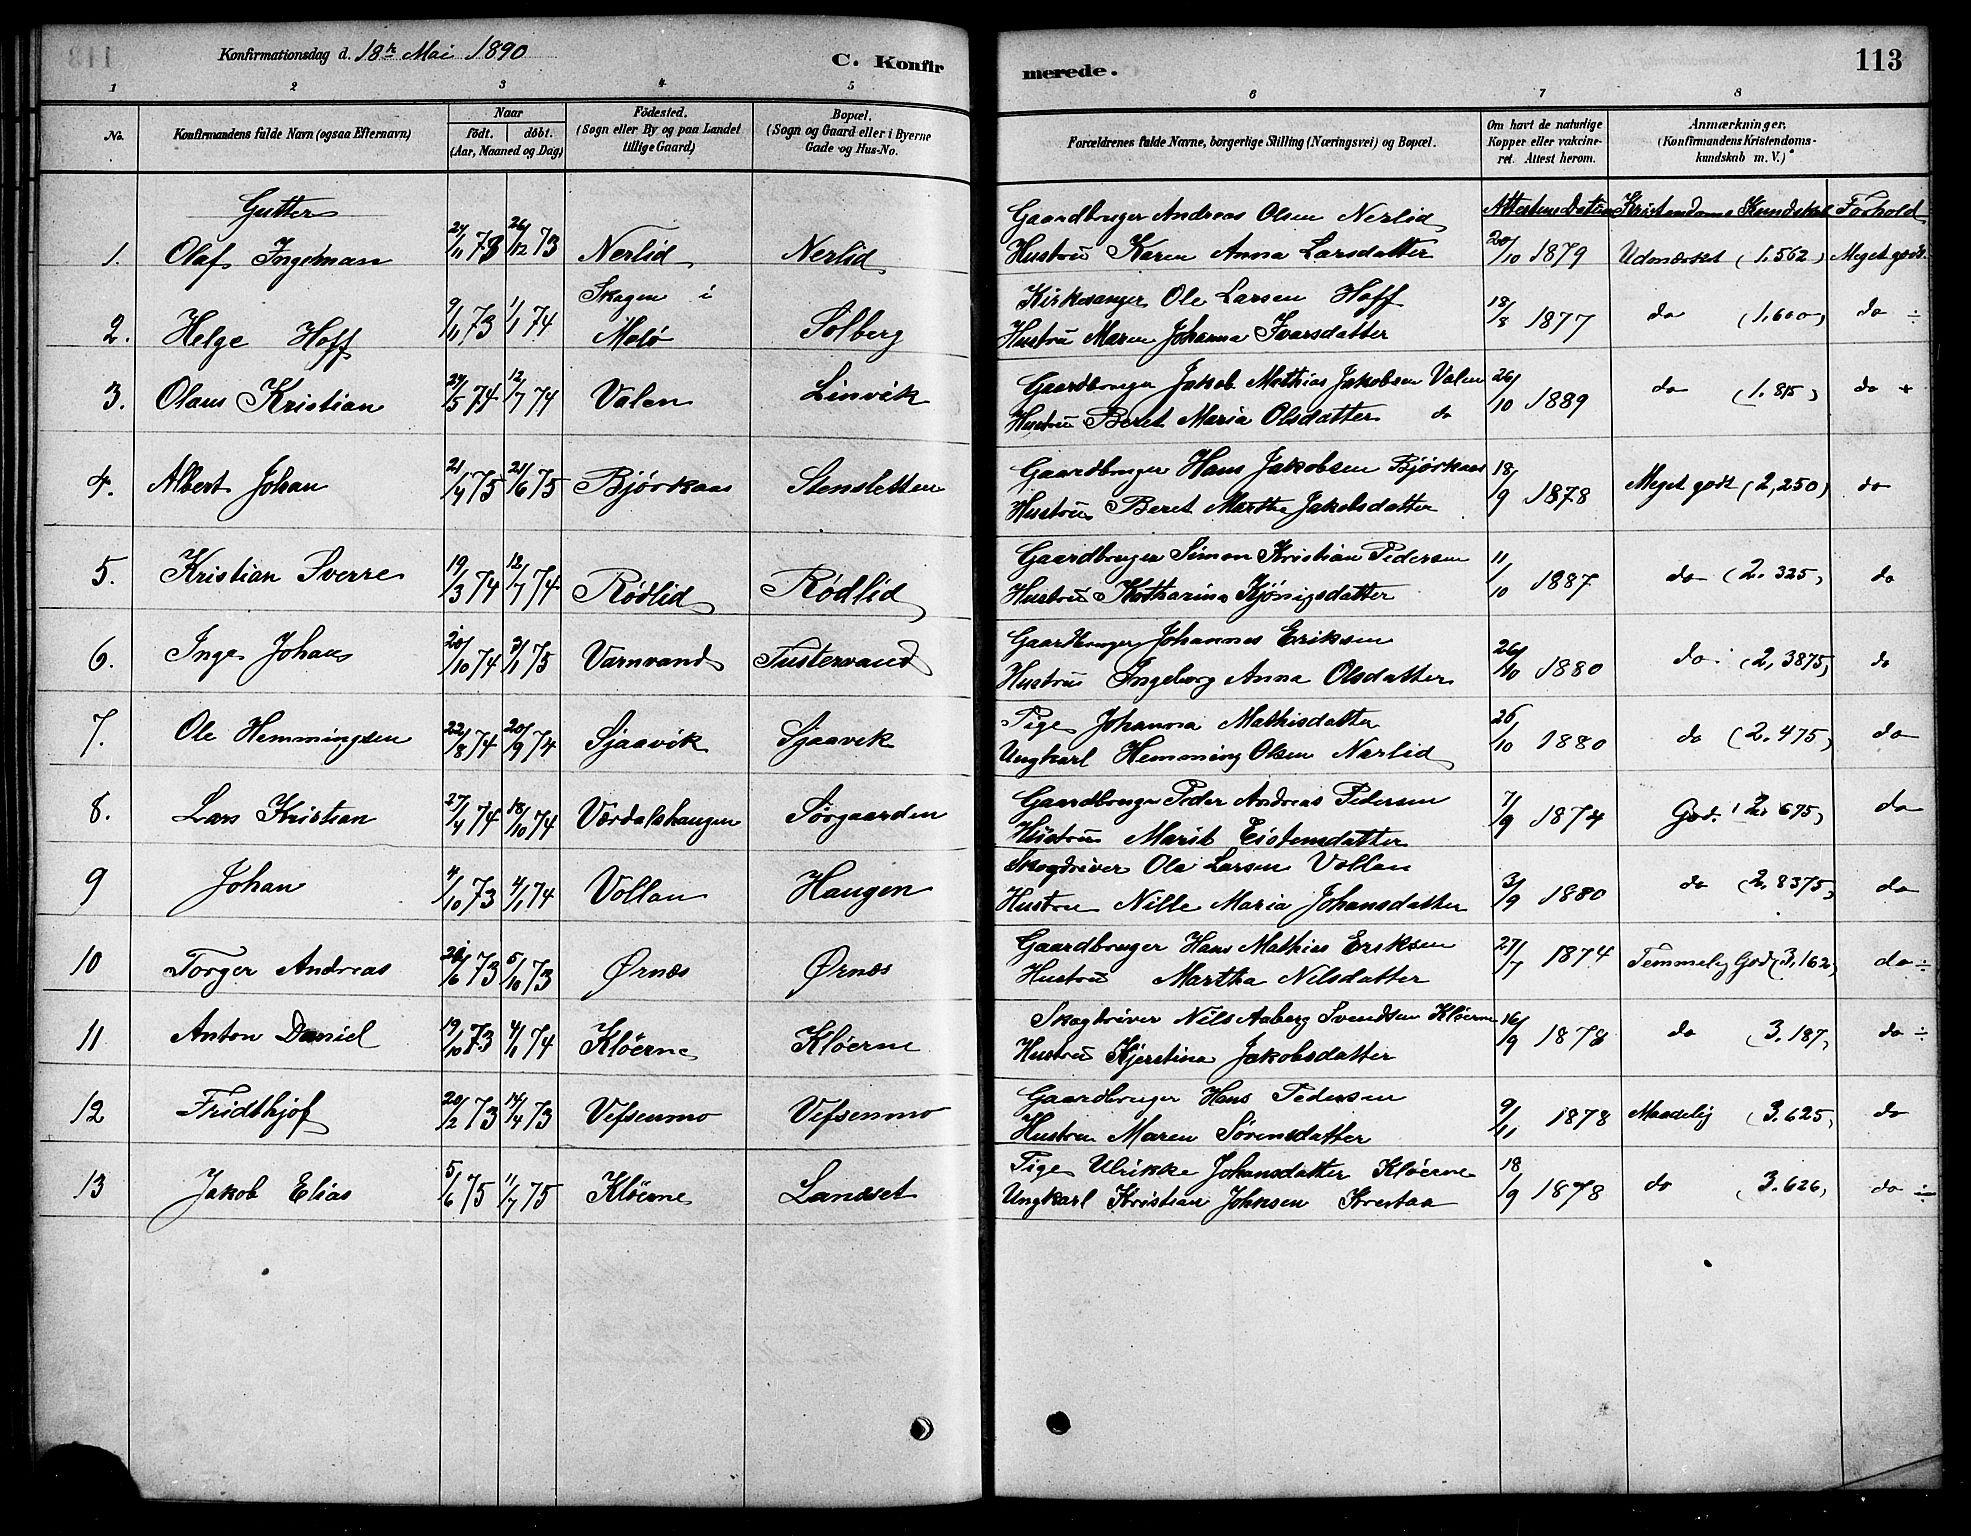 Konfirmationsdag d. 18de Mai 1890
C. Konfirmerede.
113
1 2 3 4 5 6 7 8
No. Konfirmandens fulde Navn (ogsaa Efternavn) Naar födt. döbt. (Aar, Maaned og Dag) Födested. (Sogn eller By og paa Landet tillige Gaard) Bopæl. (Sogn og Gaard eller i Byerne Gade og Hus-No. Forældrenes fulde Navne, borgerlige Stilling (Næringsvei) og Bopæl. Om havt de naturlige Kopper eller vakcineret. Attest herom. Anmærkninger. (Konfirmandens Kristendomskundskab m. V.)
Gutter
Attestens Datum Kristendoms Kundskab Forhold
Gaardbruger Andreas Olsen Nerlid
1. Olaf Ingelman 27/11 73 26/12 73 Nerlid Nerlid Hustru Karen Anna Larsdatter 20/10 1879 Udmærket (1.562) Meget godt.
Skagen i Kirkesanger Ole Larsen Hoff
2. Helge Hoff 9/11 73 1/1 74 Melö Solberg Hustru Maren Johanna Ivarsdatter 18/8 1877 do (1.600) do ÷
Gaardbruger Jakob Mathias Jakobsen Valen
3. Olaus Kristian 24/5 74 12/7 74 Valen Linvik Hustru Beret Maria Olsdatter do 26/10 1889 do (1.815) do +
Gaardbruger Hans Jakobsen Bjørkaas
4. Albert Johan 21/4 75 21/6 75 Bjørkaas Stensletten Hustru Beret Martha Jakobsdatter 18/9 1878 Meget godt (2,250) do
Gaardbruger Simon Kristian Pedersen
5. Kristian Sverre 19/3 74 12/7 74 Rødlid Rødlid Hustru Katharina Kjönigsdatter 11/10 1887 do (2.325) do
Gaardbruger Johannes Eriksen
6. Inge Johan 20/10 74 3/1 75 Varnvand Tustervand Hustru Ingeborg Anna Olsdatter 26/10 1880 do. (2,3875) do
Pige Johanna Mathisdatter
7. Ole Hemmingsen 22/8 74 20/9 74 Sjaavik Sjaavik Ungkarl Hemming Olsen Nerlid 26/10 1880 do (2.475) do
Gaardbruger Peder Andreas Pedersen
8. Lars Kristian 27/4 74 18/10 74 Værdalshaugen Sørgaarden Hustru Marit Eistensdatter 7/9 1874 God. (2.675) do
Skogdriver Ole Larsen Vollan
9 Johan 4/10 73 4/1 74 Vollan Haugen Hustru Nille Maria Johansdatter 3/9 1880 do (2.8375) do
Gaardbruger Hans Mathias Eriksen
10 Torger Andreas 26/6 73 5/10 73 Ørnæs Ørnæs Hustru Martha Nilsdatter 27/7 1874 Temmelig God (3,162) do ÷
Skogdriver Nils Aaberg Svendsen Klöerne
11 Anton Daniel 19/10 73 4/1 74 Klöerne Klöerne Hustru Kjerstina Jakobsdatter 16/9 1878 do (3.187) do ÷
Gaardbruger Hans Pedersen
12 Fridthjof 20/2 73 14/4 73 Vefsenmo Vefsenmo Hustru Maren Sørensdatter 9/11 1878 Maadelig (3.625) do
Pige Ulrikke Johansdatter Klöerne
13 Jakob Elias 5/6 75 11/7 75 Klöerne Landset Ungkarl Kristian Johnsen 18/9 1878 do (3.626) do ÷